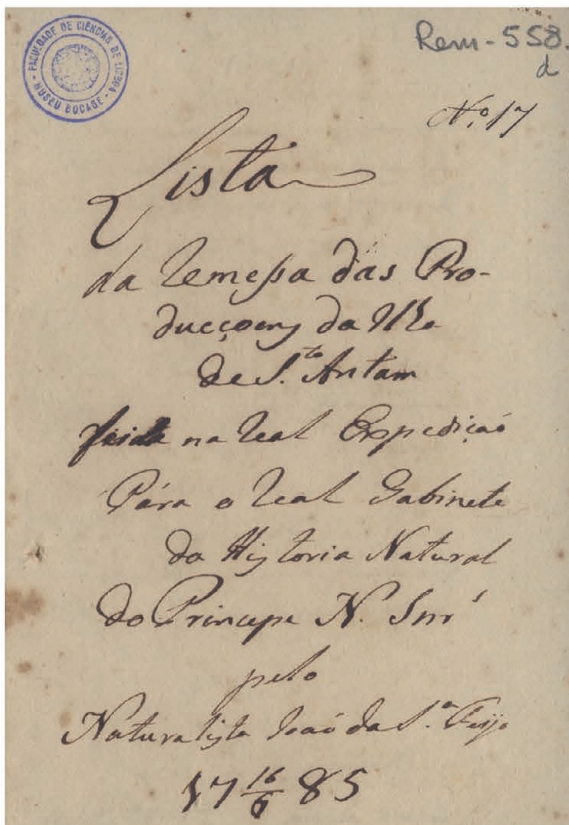 FACULDADE DE CIÊNCIAS DE LISBOA - MUSEU BOCAGE -
Rem - 558.
d
N.º 17
Lista
da Remessa das Pro-
ducçoens da Ilha
de S.to Antam
feita na Real Expediçaõ
Pára o Real Gabinete
da Historia Natural
do Principe N. Snr
pelo
Naturalista Joaõ da S.a Feijo
17 16/6 85